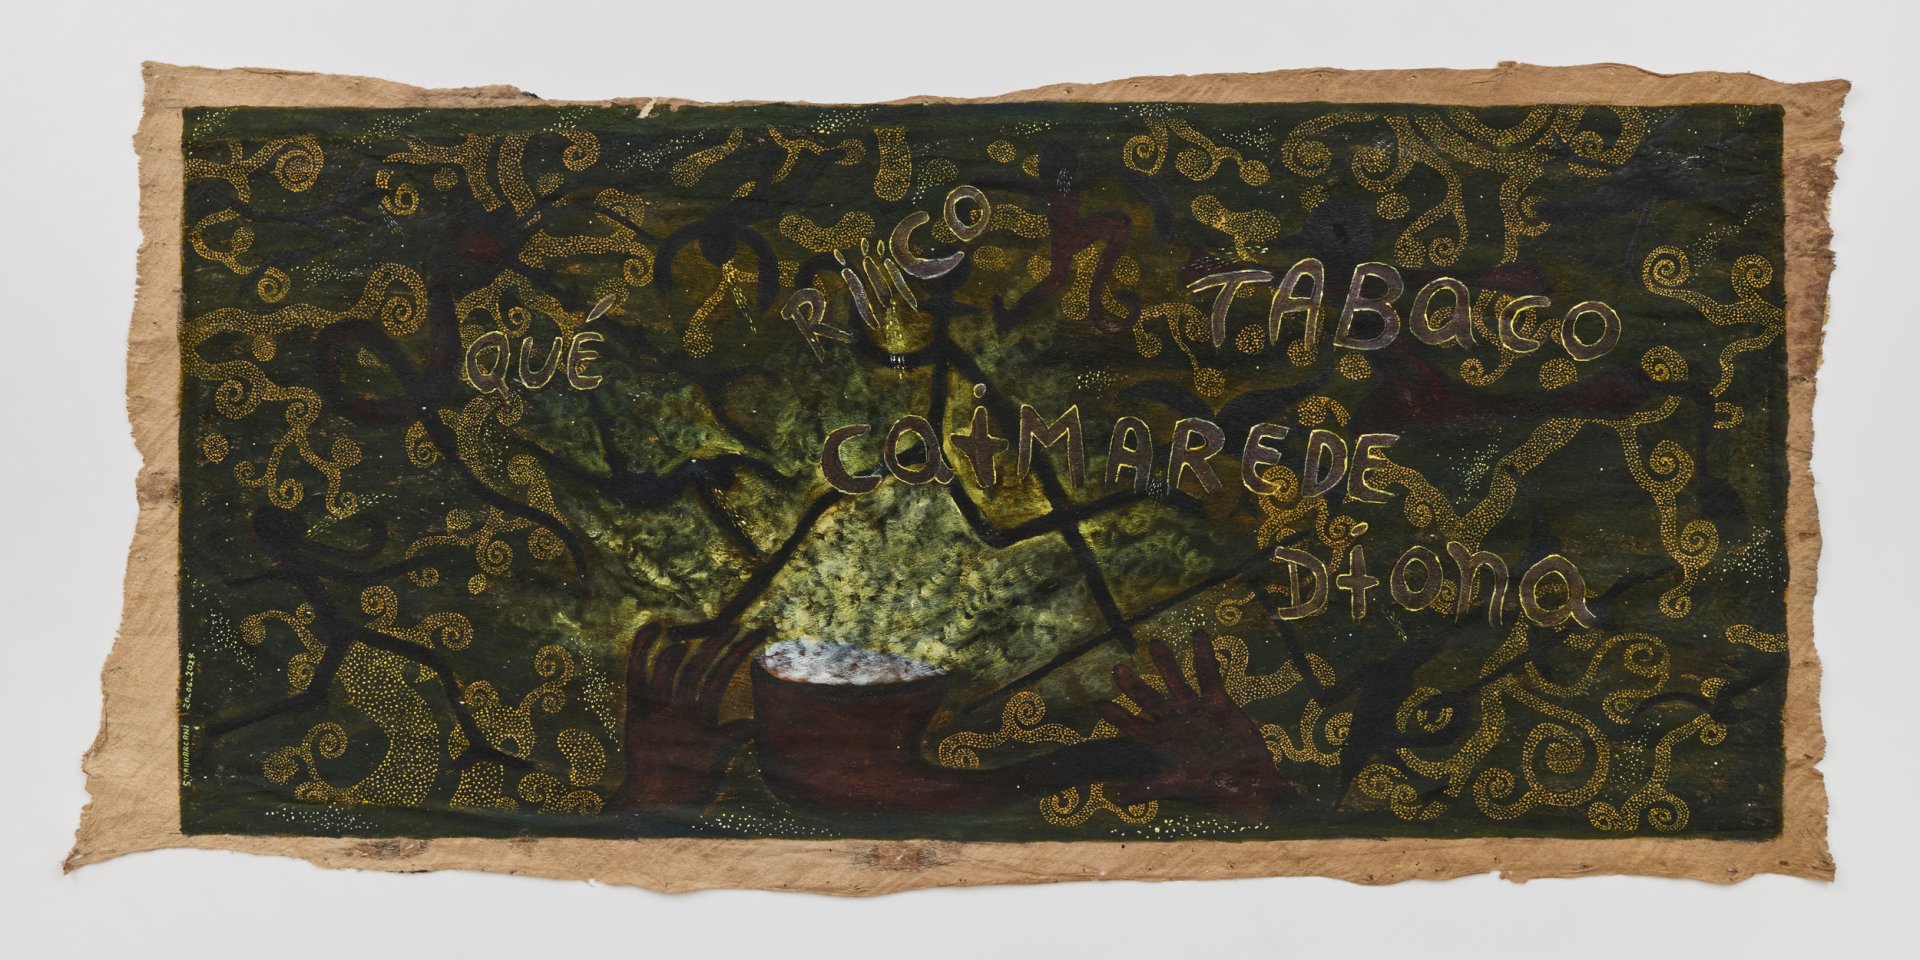 QUÉ RiiiCO TABaCO
CaiMAREDE
Diona
S.YAHUARCANI 20-06-2024